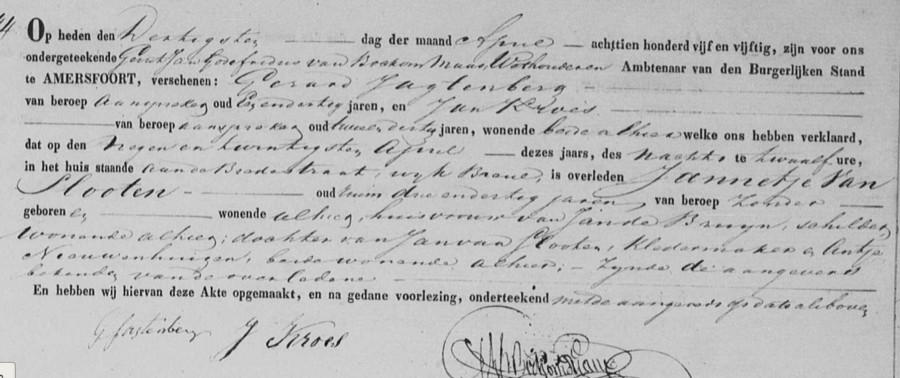 Op heden den Dertigsten dag der maand April achttien honderd vijf en vijftig, zijn voor ons
ondergeteekende Gerrit Jan Godefridus van Boekom Maas, Wethouder en Ambtenaar van den Burgerlijken Stand
te AMERSFOORT, verschenen: Gerard Jagtenberg
van beroep Aanspreker oud Eenendertig jaren, en Jan Kroes
van beroep aanspreker oud twee endertig jaren, wonende beide alhier welke ons hebben verklaard,
dat op den Negen en twintigsten April dezes jaars, des Nachts te twaalf ure,
in het huis staande aan de Breedestraat, wijk Breul, is overleden Jannetje Van
Slooten oud ruim drie endertig jaren, van beroep Zonder
geboren wonende alhier, huisvrouw van Jan de Bruyn, schilder
wonende alhier; dochter van Jan van Slooten, Kledermaker en Antje
Nieuwenhuizen, beide wonende alhier; - Zynde de aangevers
bekenden van de overledene
En hebben wij hiervan deze Akte opgemaakt, en na gedane voorlezing, onderteekend met de aangevers op dato als boven
G Jagtenberg J Kroes